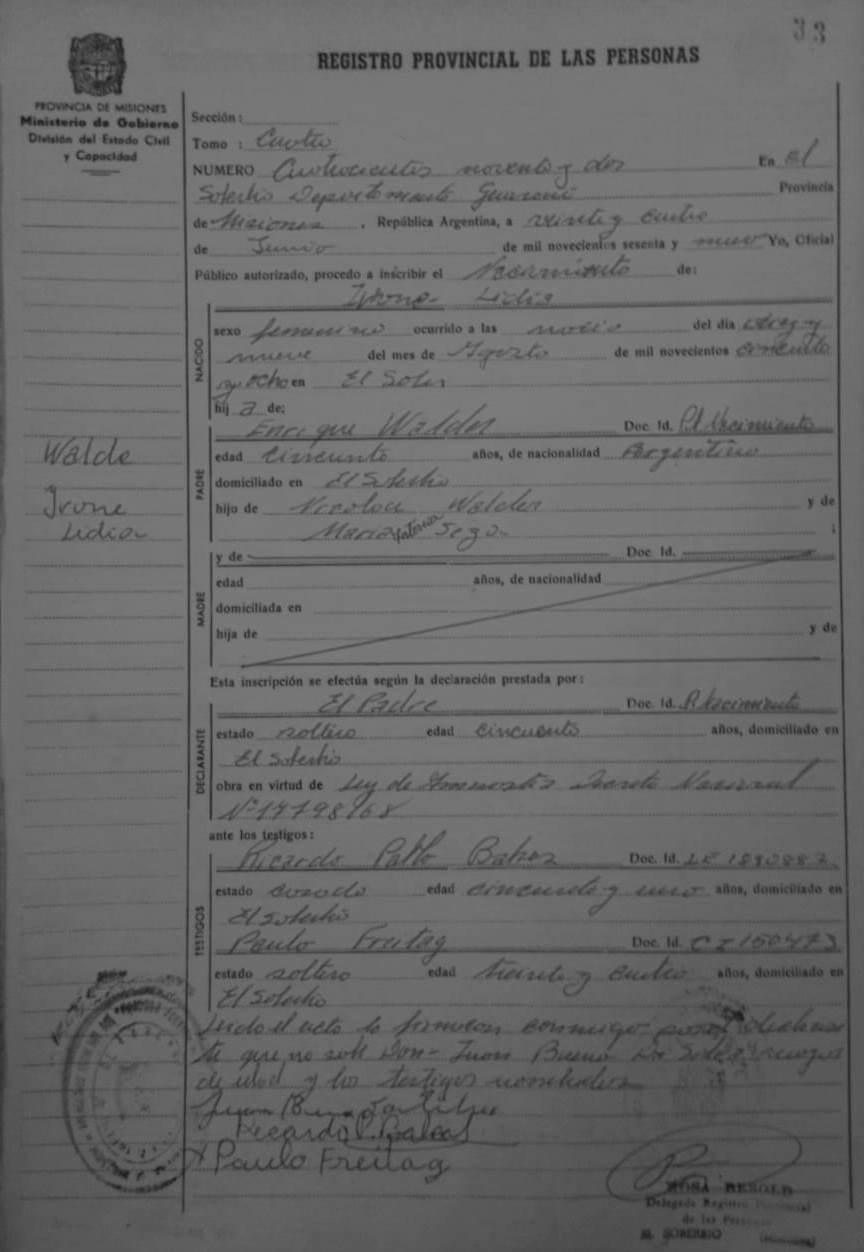 33
REGISTRO PROVINCIAL DE LAS PERSONAS
PROVINCIA DE MISIONES
Ministerio de Gobierno
División del Estado Civil
y Capacidad
Sección:
Tomo : Cuatro
NUMERO Cuatrocientos noventa y dos En El
Soberbio Departamento Guaraní Provincia
de Misiones, República Argentina, a veinte y cuatro
de Junio de mil novecientos sesenta y nueve Yo, Oficial
Público autorizado, procedo a inscribir el Nacimiento de:
Ivone Lidia
NACIDO
sexo femenino ocurrido a las del día diez y
nueve del mes de Agosto de mil novecientos cincuenta
y ocho en El Sober
hij a de:
PADRE
Enrique Walder Doc. Id. P. Nacimiento
edad cincuenta años, de nacionalidad Argentino
domiciliado en El Soberbio
hijo de Nicolou Walder y de
Maria Sega ;
Walde
Ivone
Lidia
MADRE
y de Doc. Id.
edad años, de nacionalidad
domiciliada en
hija de y de
Esta inscripción se efectúa según la declaración prestada por:
DECLARANTE
El Padre Doc. Id. P. Nacimiento
estado soltero edad cincuenta años, domiciliado en
El Soberbio
obra en virtud de Ley de Decreto Nacional
Nº 17798/68
ante los testigos:
TESTIGOS
Ricardo Pablo Doc. Id. LE
estado casado edad cincuenta y uno años, domiciliado en
El Soberbio
Paulo Freitag Doc. Id. CI 150473
estado soltero edad treinta y cuatro años, domiciliado en
El Soberbio
Leido el acto lo firmaron conmigo por el declaran
te que no sabe Don Juan Bueno Da Silva a ruego
y los testigos nombrados
Juan Bueno Da Silva
Ricardo P.
Paulo Freitag
ROSA
Delegada Registro Provincial
de las Personas
EL SOBERBIO (Misiones)